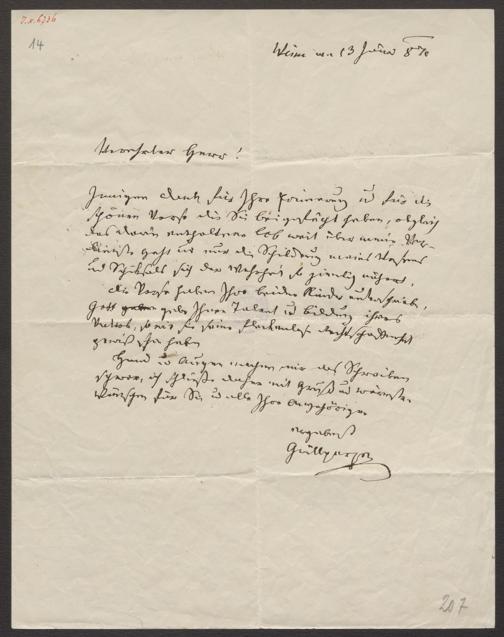 J.N. 6736
14
Wien am 13 Jänner 870
Verehrter Herr!
Innigen Dank für Ihre Erinnerung u für die
schönen Verse die Sie beigefügt haben, obgleich
das darin enthaltene Lob weit über mein Ver-
dienst geht und nur die Schilderung meines Wesens
und Schicksals sich der Wahrheit so ziemlich nähert.
Die Verse haben Ihre beiden Kinder
Gott gebe Ihnen Talent u Bildung ihres
Vaters, so wie sie seine Rechtschaffenheit
gewiß schon haben
Hand u Augen machen mir das Schreiben
schwer, ich schließe daher mit Gruß u wärmsten
Wünschen für Sie u alle Ihre Angehörigen
ergebenst
Grillparzer
207